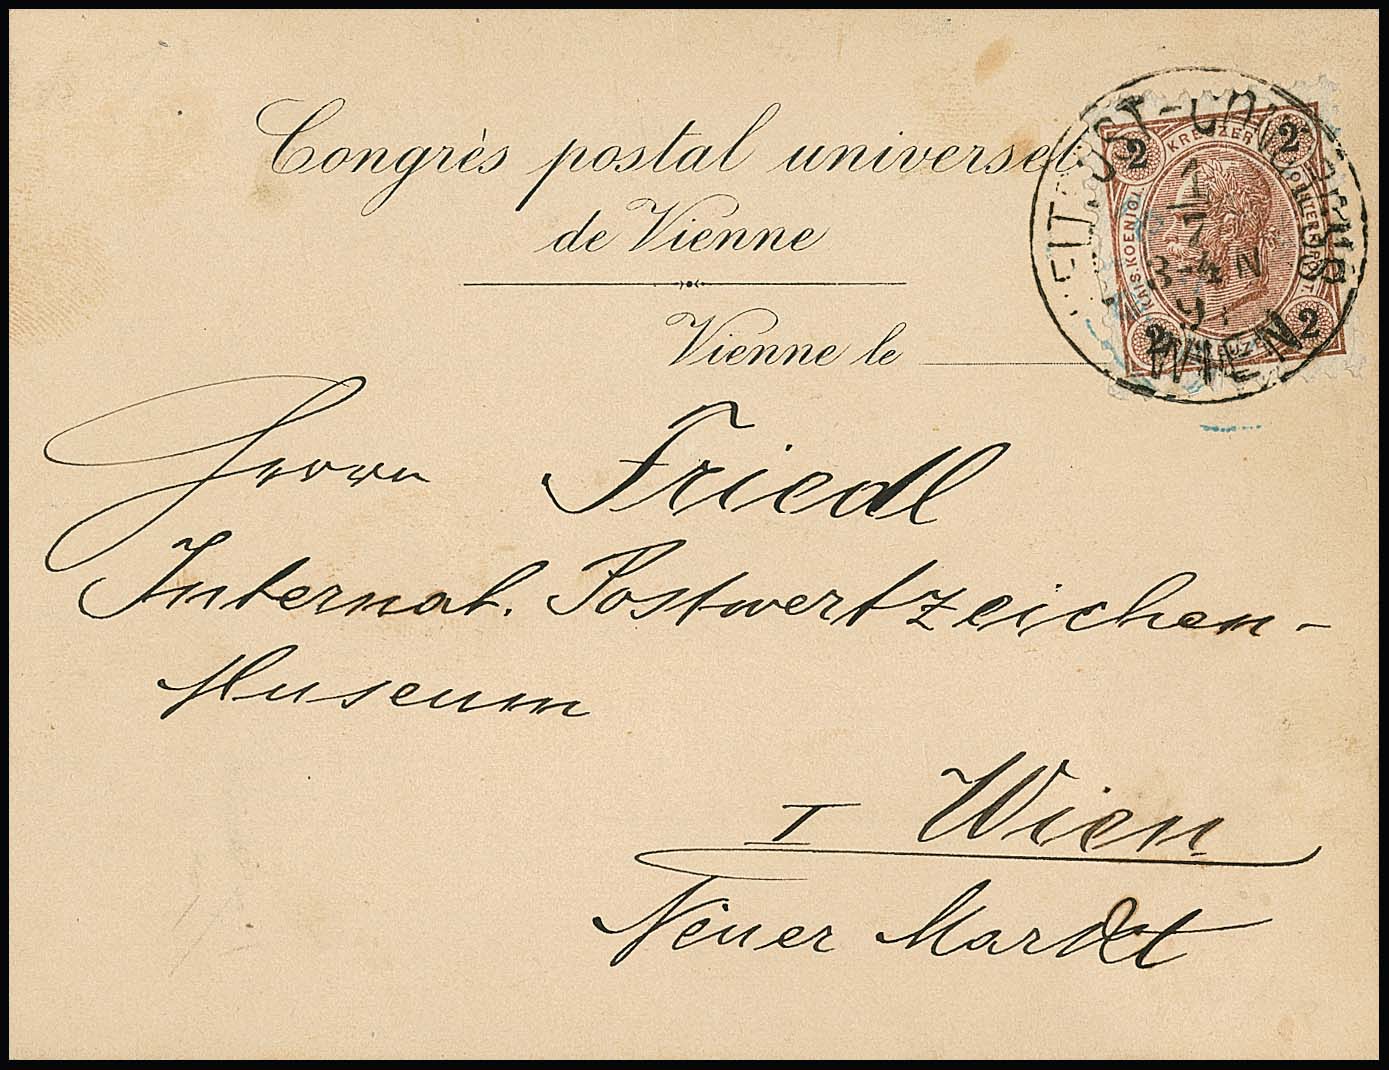 Congrès postal universel
de Vienne
Vienne le
WELTPOST-CONGRESS
1
7
3-4 N
91
WIEN
2 KREUZER 2
KAIS. KOENIGL. OESTERR. POST
2 KREUZER 2
Herrn Friedl
Internat. Postwertzeichen-
Museum
I Wien
Neuer Markt